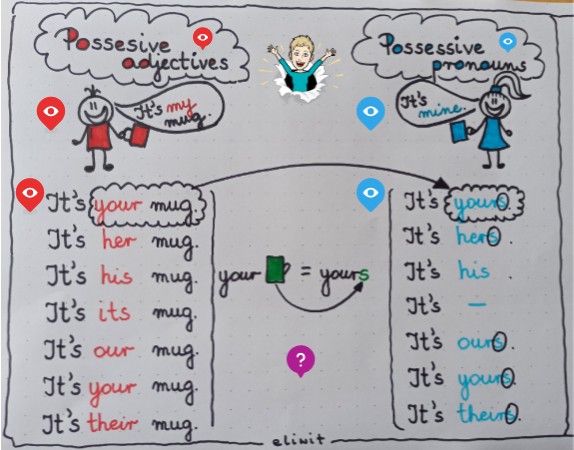 Possesive
adjectives
Possessive
pronouns
It's my
mug.
It's
mine.
It's your mug.
It's her mug.
It's his mug.
It's its mug.
It's our mug.
It's your mug.
It's their mug.
your = yours
?
It's yours.
It's hers.
It's his .
It's –
It's ours.
It's yours.
It's theirs.
eliwit